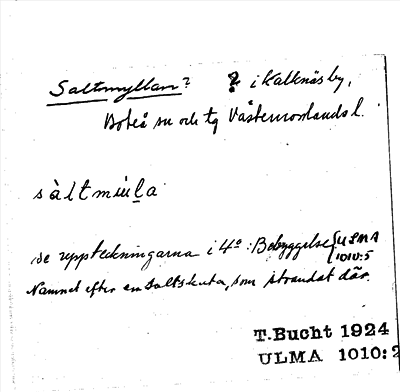 Saltmyllan? ? i Kalknäs by,
Boteå sn och tg Västernorrlands l.
sàltmiùla
se uppteckningarna i 4º: Bebyggelse ULMA 1010:5
Namnet efter en saltskuta, som strandat där.
T.Bucht 1924
ULMA 1010:2